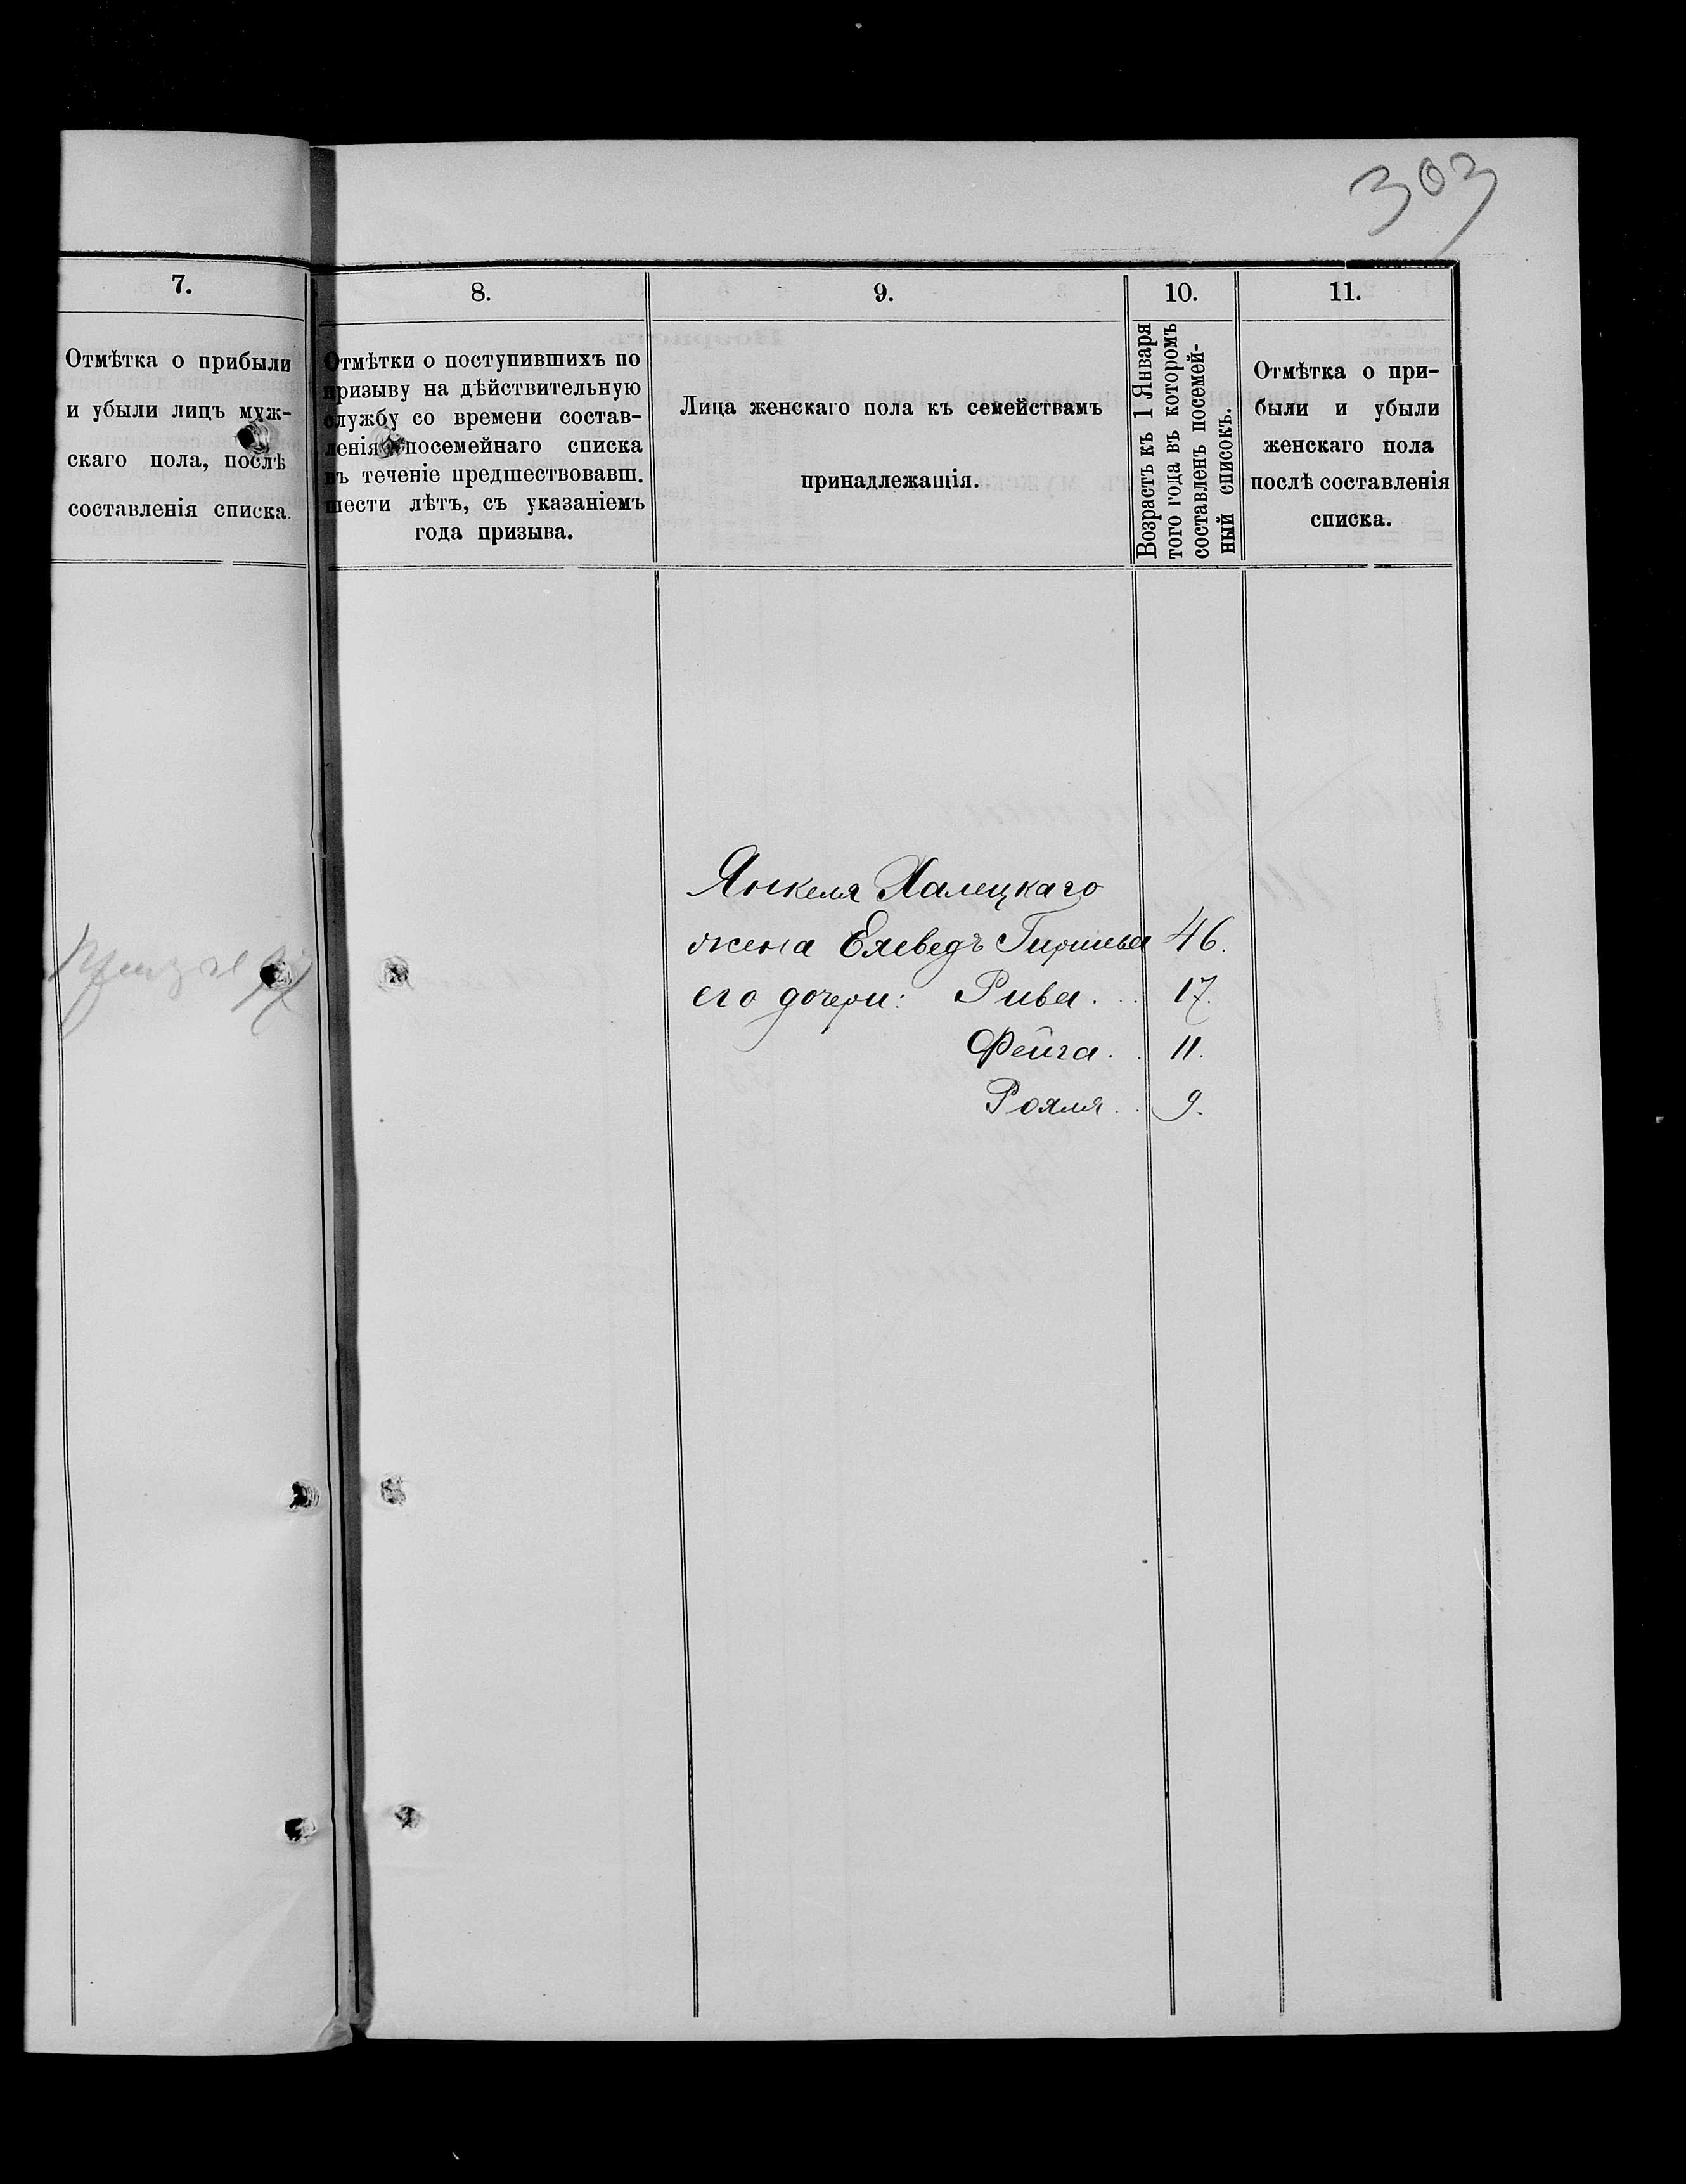 303
7.
Отмѣтка о прибыли
и убыли лицъ муж-
скаго пола, послѣ
составленія списка.
8.
Отмѣтки о поступившихъ по
призыву на дѣйствительную
службу со времени состав-
ленія посемейнаго списка
въ теченіе предшествовавш.
шести лѣтъ, съ указаніемъ
года призыва.
9.
Лица женскаго пола къ семействамъ
принадлежащія.
10.
Возрастъ къ 1 Января
того года въ которомъ
составленъ посемей-
ный списокъ.
11.
Отмѣтка о при-
были и убыли
женскаго пола
послѣ составленія
списка.
Янкеля Халецкаго
жена Ехеведъ Гиршева 46.
его дочери: Рива . . 17.
Фейга . . 11.
Рохля . . 9.